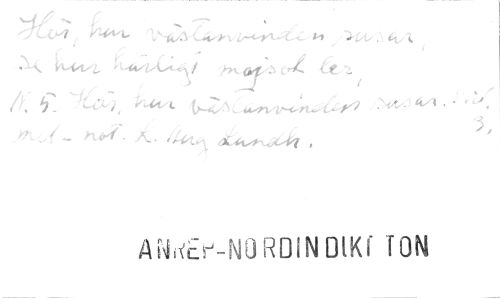 Hör, hur västanvinden susar,
se hur härligt majsol ler,
N. 5. Hör, hur västanvinden susar.
mel - not. L. Lundh.
3.
ANREP-NORDIN DIKT TON